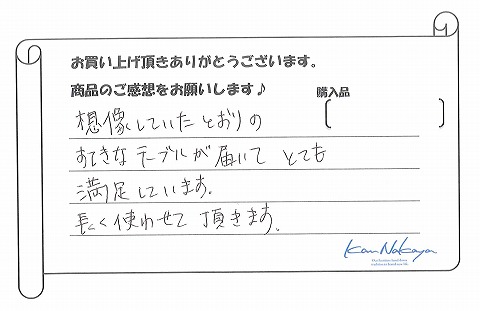 お買い上げ頂きありがとうございます。
商品のご感想をお願いします♪
購入品
想像していたとおりの
すてきなテーブルが届いて とても
満足しています。
長く使わせて頂きます。
Kan Nakaya